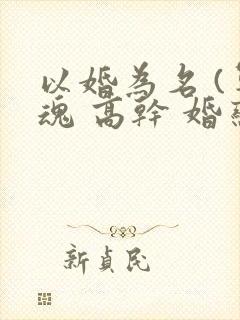 以婚為名(
魂 高幹 婚
新貞民